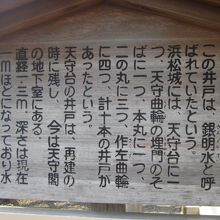 この井戸は、銀明水と呼
ばれていたという。
浜松城には、天守台に一
つ、天守曲輪の埋門のそ
ばに一つ、本丸に一つ、
二の丸に三つ、作左曲輪
に四つ、計十本の井戸が
あったという。
天守台の井戸は、再建の
時に残し、今は天守閣
の地下室にある。
直径一・三m、深さは現在
1mほどになっており水